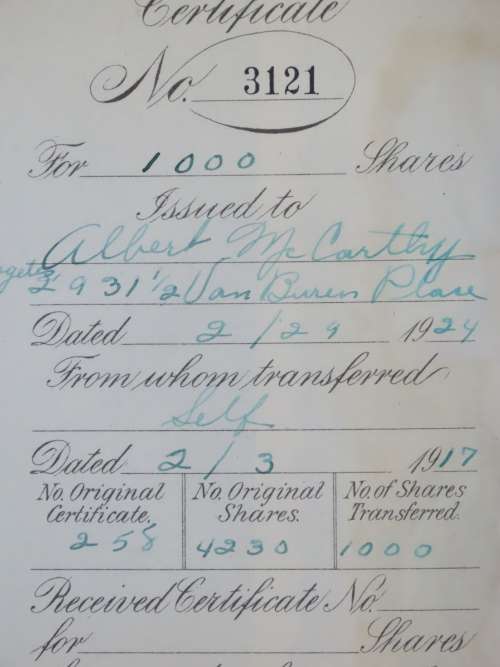 Certificate
No. 3121
For 1000 Shares
Issued to
Albert McCarthy
2931 1/2 Van Buren Place
Dated 2/29 1924
From whom transferred
Self
Dated 2/3 1917
No. Original Certificate. No. Original Shares. No. of Shares Transferred.
258 4230 1000
Received Certificate No.
for Shares